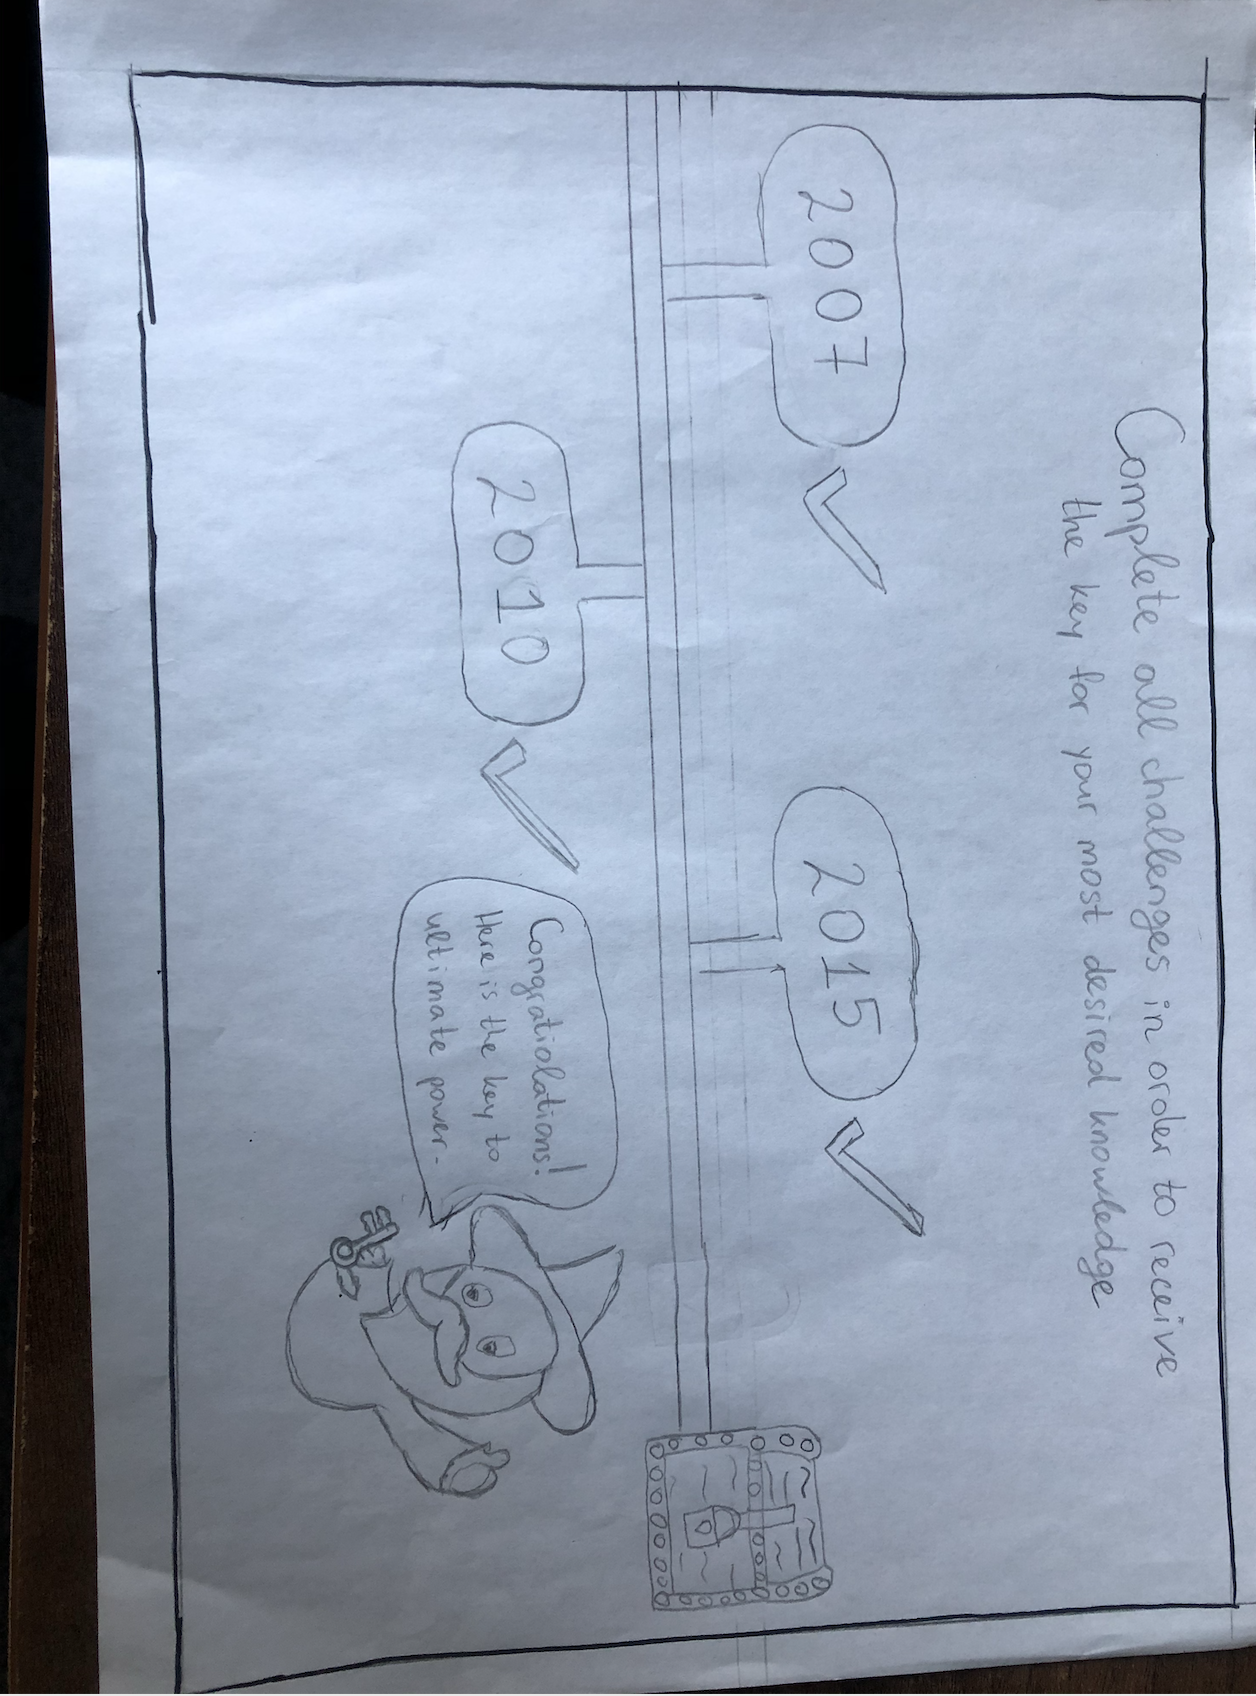 Complete all challenges in order to receive
the key for your most desired knowledge
2007
2015
2010
Congratiolations!
Here is the key to
ultimate power.